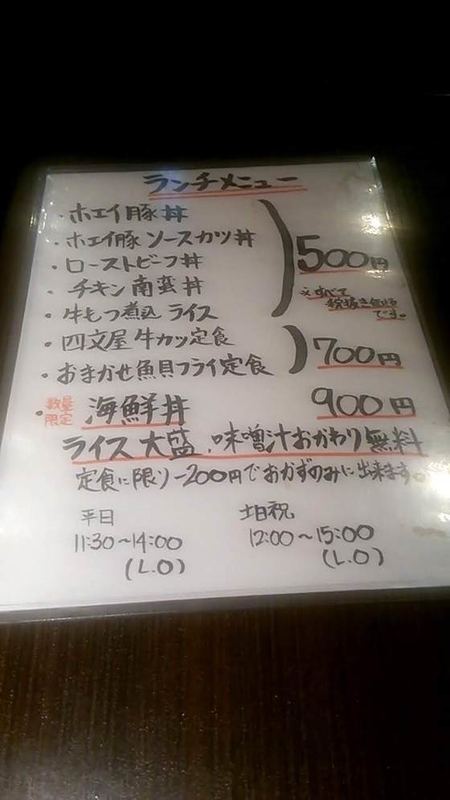 ランチメニュー
・ホエイ豚丼
・ホエイ豚ソースカツ丼
・ローストビーフ丼
・チキン南蛮丼
・牛もつ煮込ライス
500円
※すべて
税抜き価格
です。
・四文屋牛カツ定食
・おまかせ魚貝フライ定食
700円
・数量
限定
海鮮丼 900円
ライス大盛、味噌汁おかわり無料
定食に限り-200円でおかずのみに出来ます。
平日 土日祝
11:30〜14:00 12:00〜15:00
(L.O) (L.O)